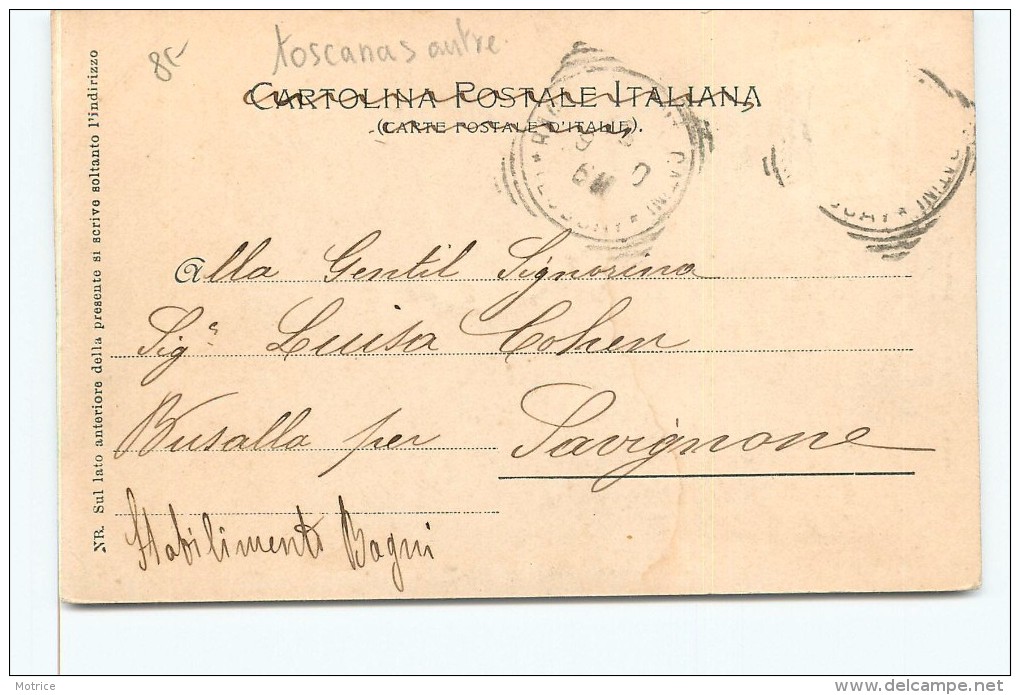 85-
toscanas autre.
CARTOLINA POSTALE ITALIANA
(CARTE POSTALE D'ITALIE).
CATINI
CATINI
6M
Alla Gentil Signorina
Sig.a Luisa Cohen
Busalla per Savignone
Stabilimento Bagni
NR. Sul lato anteriore della presente si scrive soltanto l'indirizzo
Motrice
http://www.delcampe.net